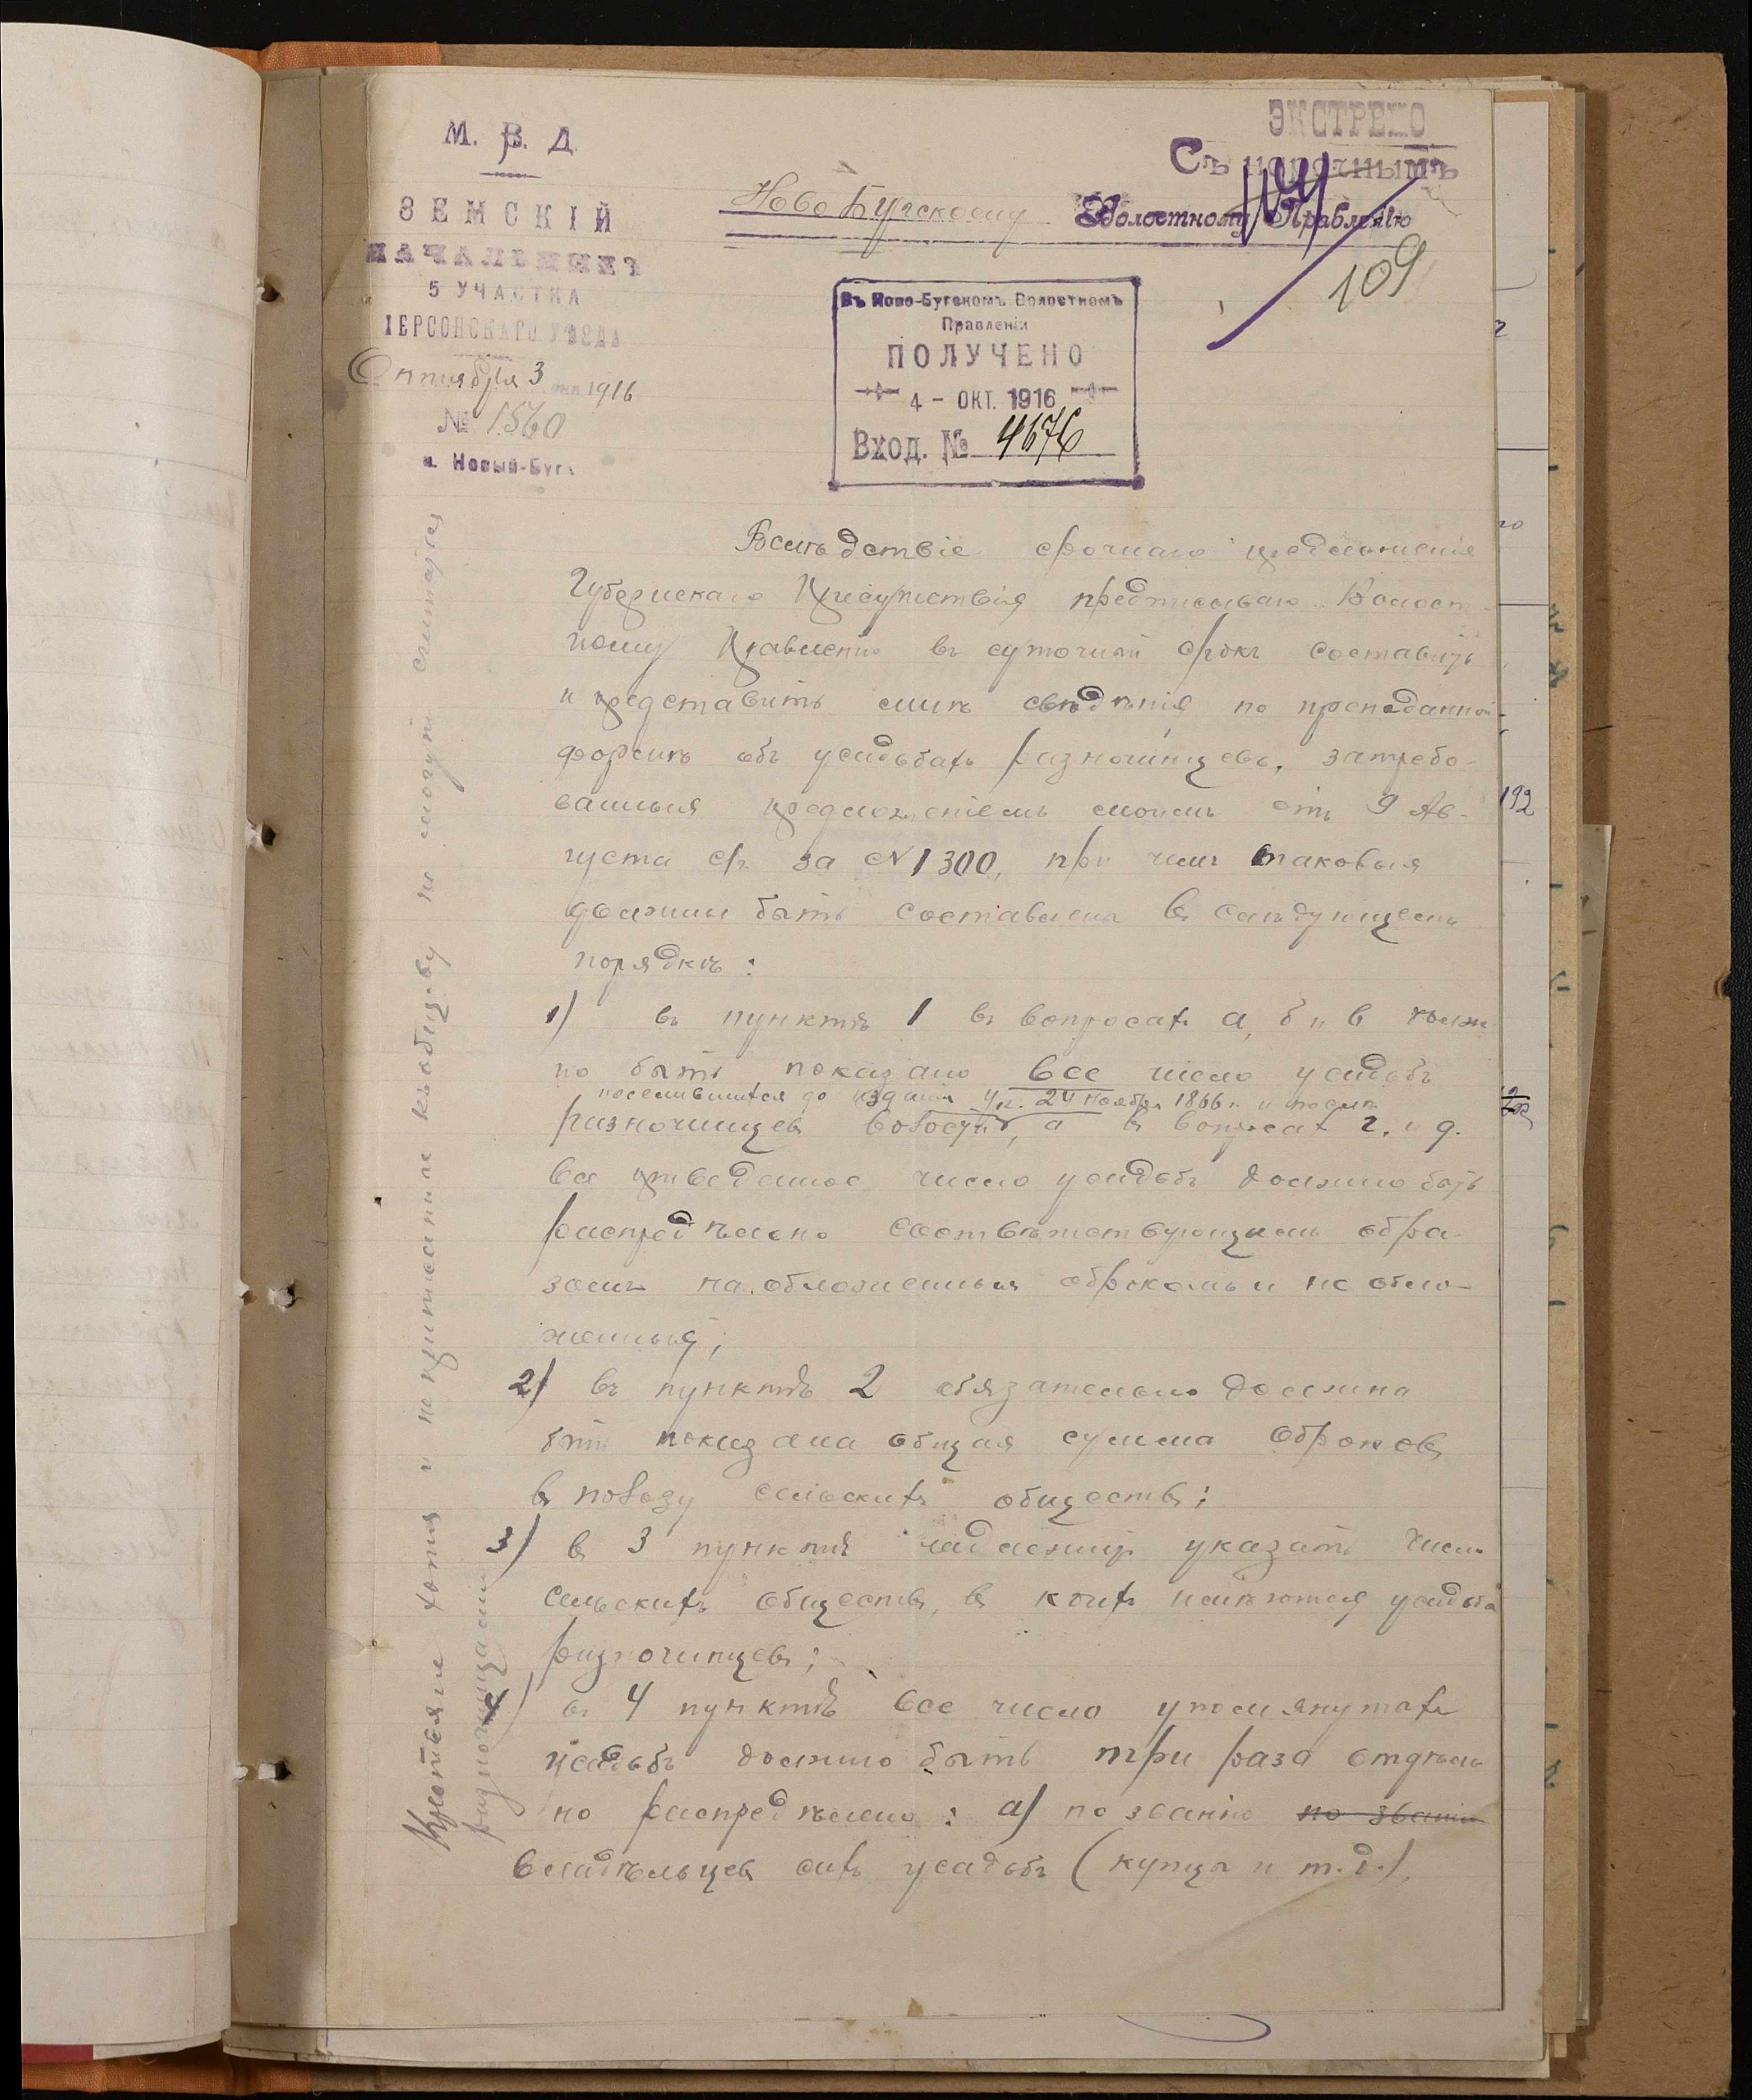 М. В. Д.
ЗЕМСКІЙ
НАЧАЛЬНИКЪ
5 УЧАСТКА
ХЕРСОНСКАГО УѢЗДА
Октября 3 дня 1916
№ 1560
м. Новый-Бугъ
ЭКСТРЕННО
Съ нарочнымъ
Ново Бугскому Волостному Правленію
109
Въ Ново-Бугскомъ Волостномъ
Правленіи
ПОЛУЧЕНО
4 - ОКТ. 1916
Вход. № 4676
Вслѣдствіе срочнаго предложенія
Губернскаго Присутствія предписываю Волост-
ному Правленію въ суточный срокъ составить
и представить мнѣ свѣдѣнія по преподанной
формѣ объ усадьбахъ разночинцевъ, затребо-
ванныя предложеніемъ моимъ отъ 9 Ав-
густа с.г. за № 1300, при чемъ таковыя
должны быть составлены въ слѣдующемъ
порядкѣ:
1) въ пунктѣ 1 въ вопросахъ а, б и в должн
но быть показано все число усадьбъ
поселившихся до изданія ук. 24 Ноября 1866 г. и
разночинцевъ волости, а въ вопросахъ г. и д.
все приведенное число усадьбъ должно быть
распредѣлено соотвѣтствующимъ обра-
зомъ на обложенныя оброкомъ и не обло-
женныя;
2) въ пунктѣ 2 обязательно должна
быть показана общая сумма оброковъ
въ пользу сельскихъ обществъ;
3) въ 3 пунктѣ надлежитъ указать число
сельскихъ обществъ, въ коихъ имѣются усадьбы
разночинцевъ;
4) въ 4 пунктѣ все число упомянутыхъ
усадьбъ должно быть три раза отдѣль
но распредѣлено: а) по званію по званію
владѣльцевъ сихъ усадьбъ (купцы и т.д.),
Крестьяне хотя и не приписанные къ общ-ву не могутъ считаться
разночинцами